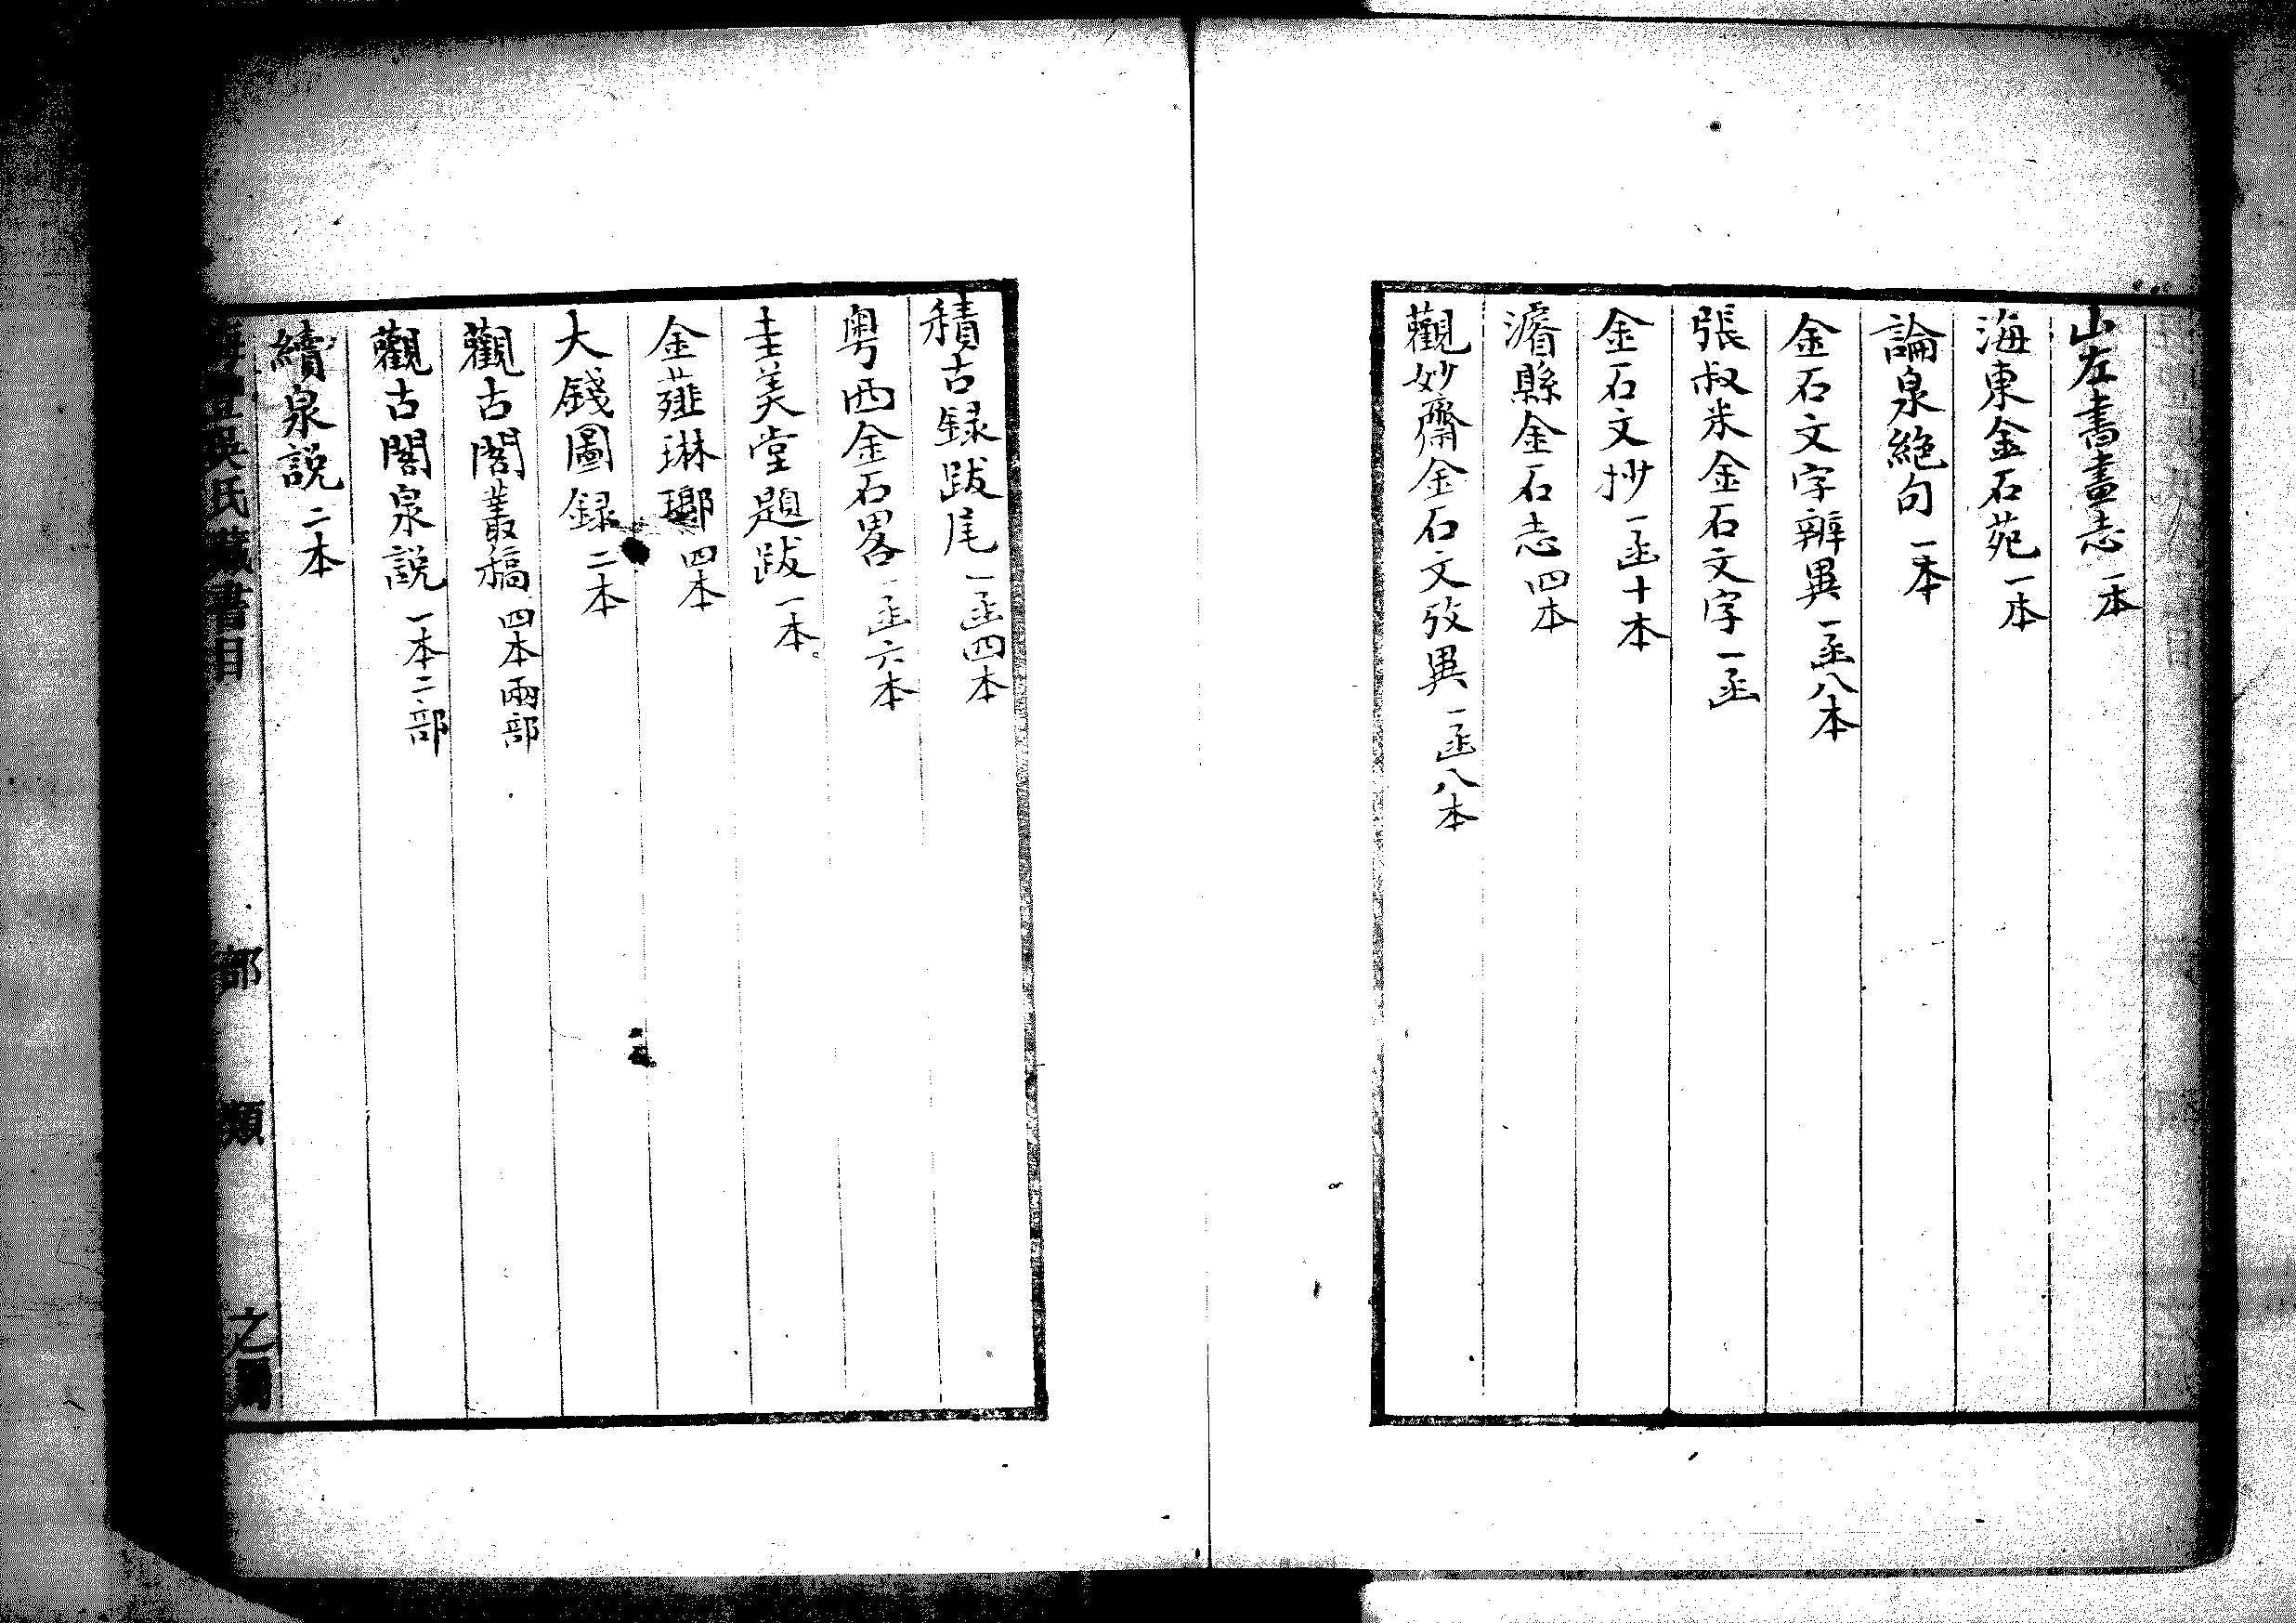 山左書畫志 一本
海東金石苑 一本
論泉絶句 一本
金石文字辨異 一函八本
張叔未金石文字 一函
金石文抄 一函十本
濬縣金石志 四本
觀妙齋金石文攷異 一函八本
積古録跋尾 一函四本
粤西金石畧 一函六本
圭美堂題跋 一本
金薤琳瑯 四本
大錢圖録 二本
觀古閣叢稿 四本兩部
觀古閣泉説 一本二部
續泉説 二本
海豐吳氏藏書目 部 類 之屬